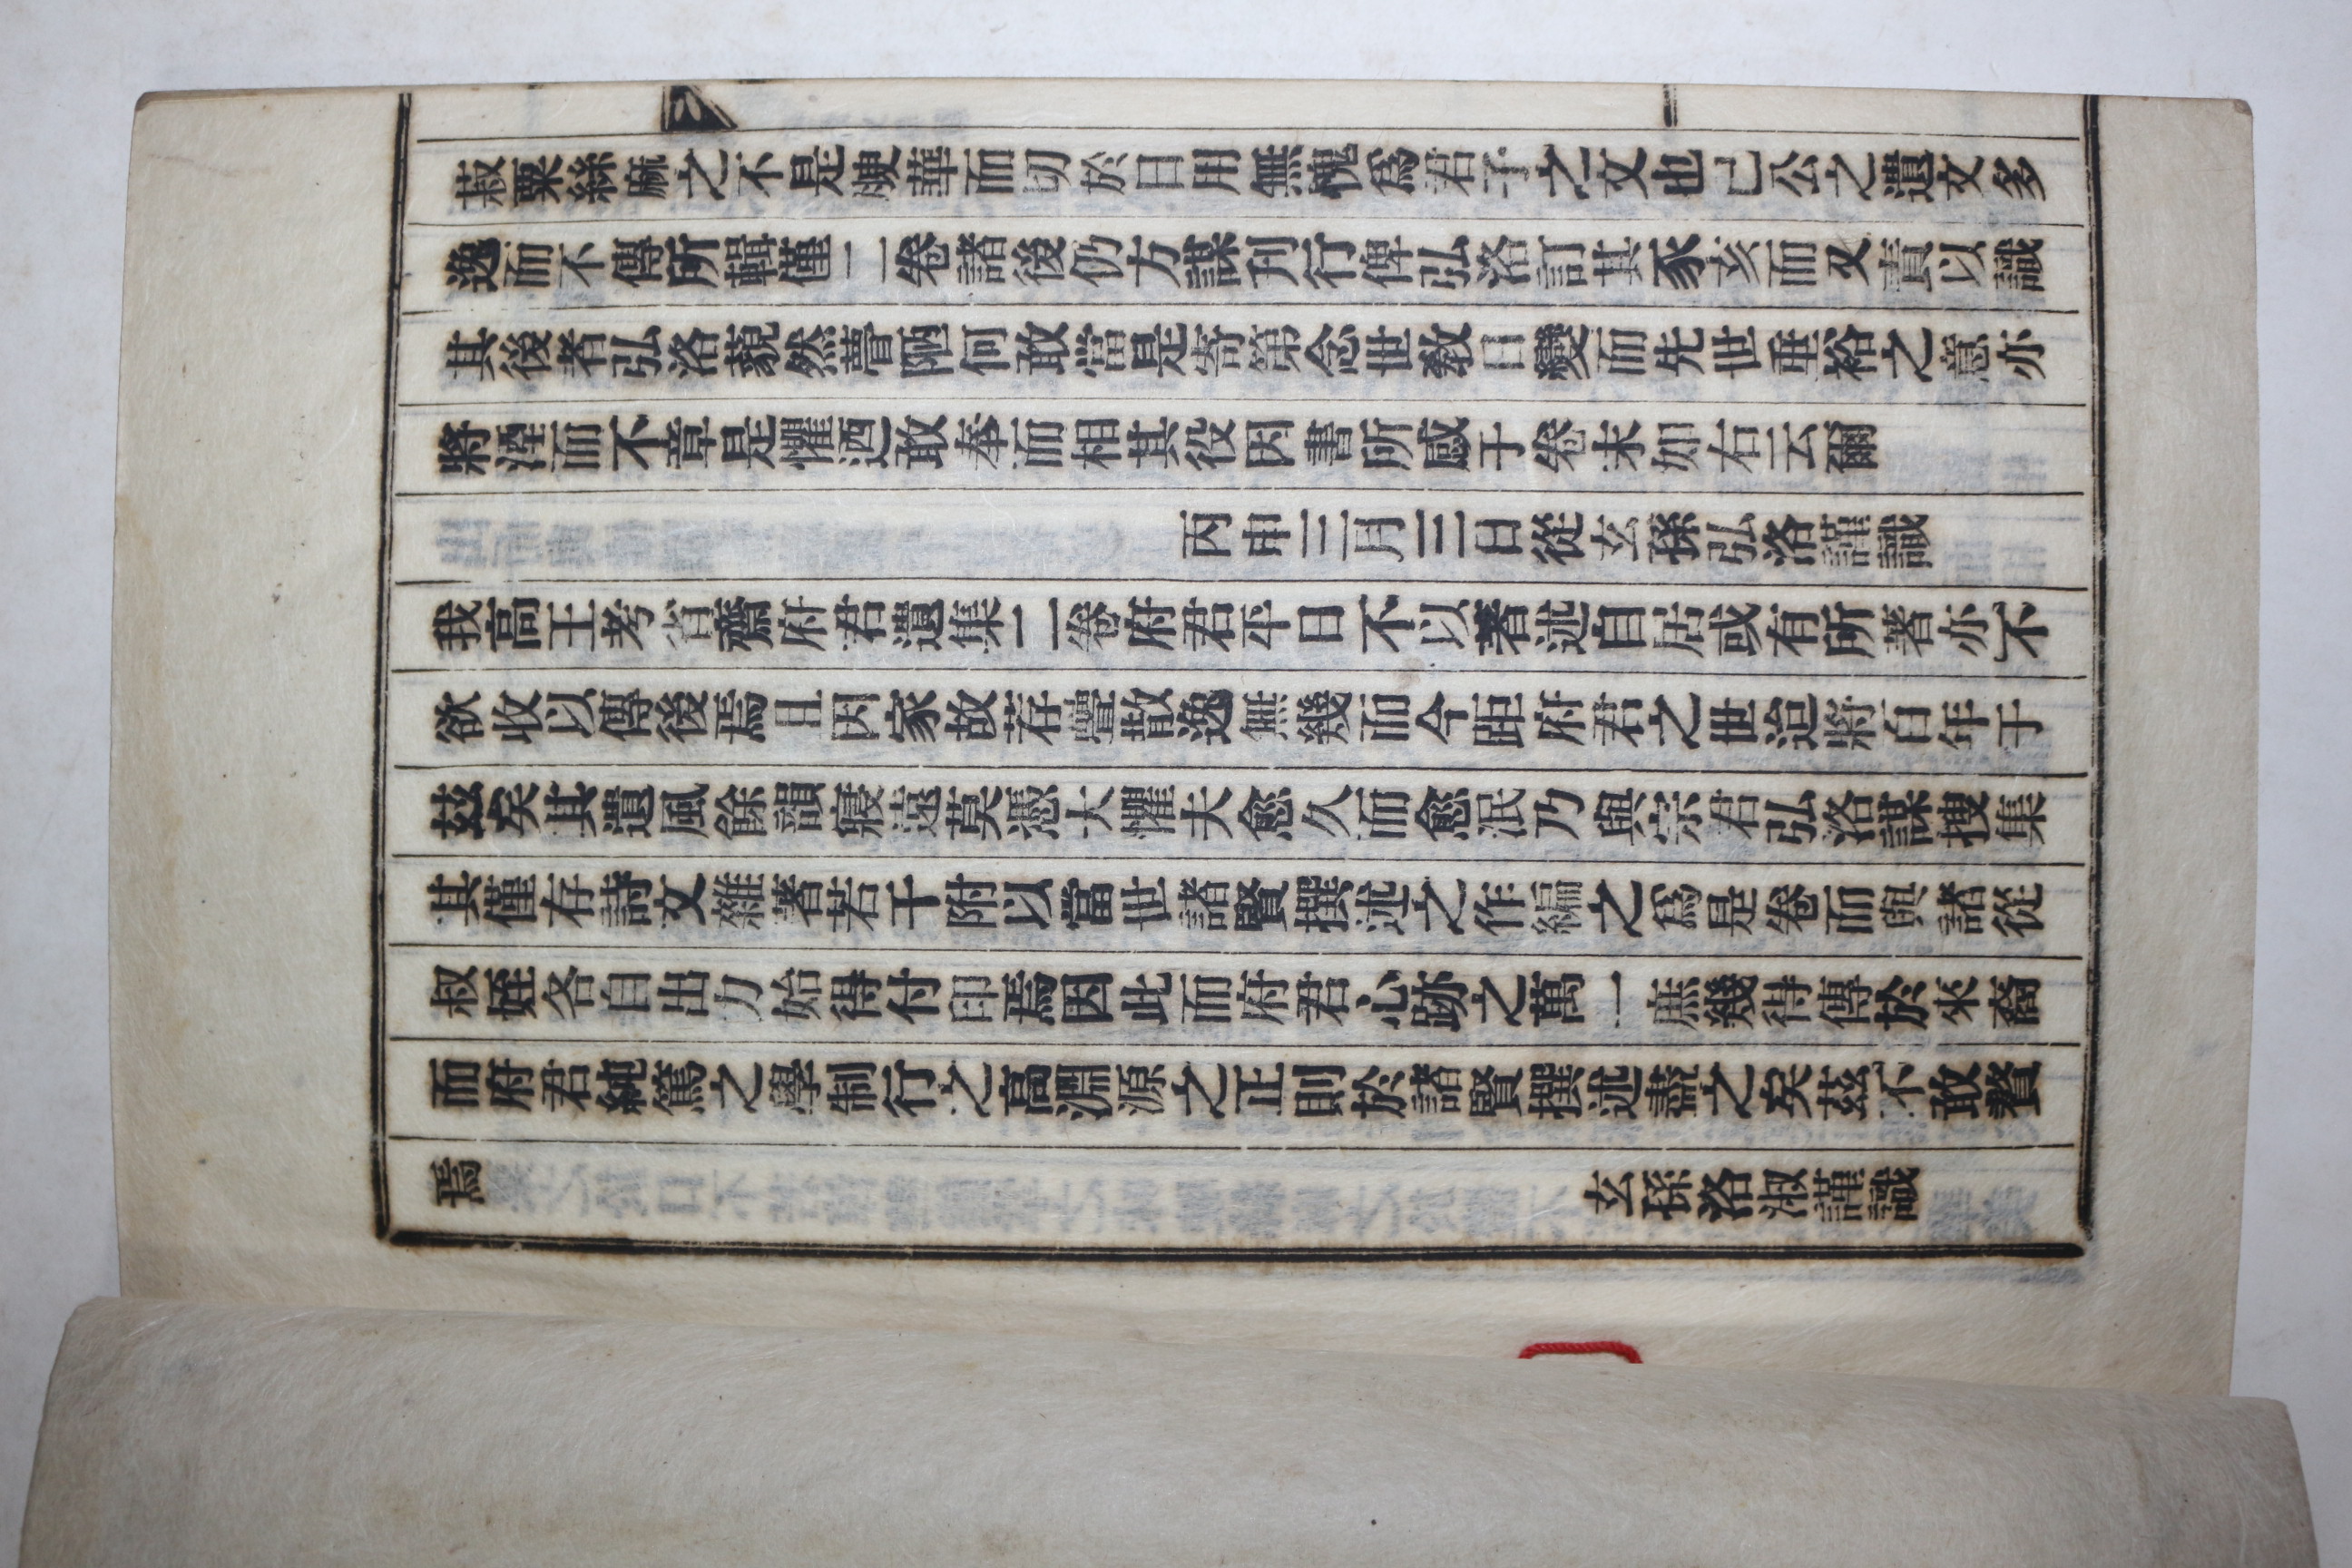 菽粟絲麻之不是㬠華而切於日用無愧爲君子之文也已公之遺文多
逸而不傳所輯僅二卷諸後仍方謀刋行俾弘洛訂其豕亥而又責以識
其後者弘洛藐然瞢陋何敢當是寄第念世敎日變而先世垂裕之意亦
將湮而不章是懼迺敢奉而相其役因書所感于卷末如右云爾
丙申三月三日從玄孫弘洛謹識
我高王考省齋府君遺集二卷府君平日不以著述自居或有所著亦不
欲收以傳後焉且因家故荐疊散逸無幾而今距府君之世迨將百年于
玆矣其遺風餘韻寢遠莫憑大懼夫愈久而愈泯乃與宗君弘洛謀搜集
其僅存詩文雜著若干附以當世諸賢撰述之作編之爲是卷而與諸從
叔姪各自出力始得付印焉因此而府君心跡之萬一庶幾得傳於來裔
而府君純篤之學制行之高淵源之正則於諸賢撰述盡之矣茲不敢贅
焉
玄孫洛淑謹識